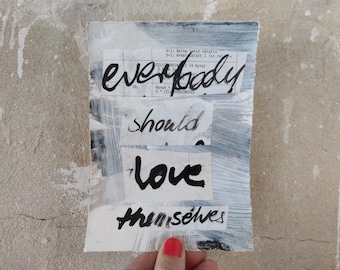 everybody
should
love
themselves